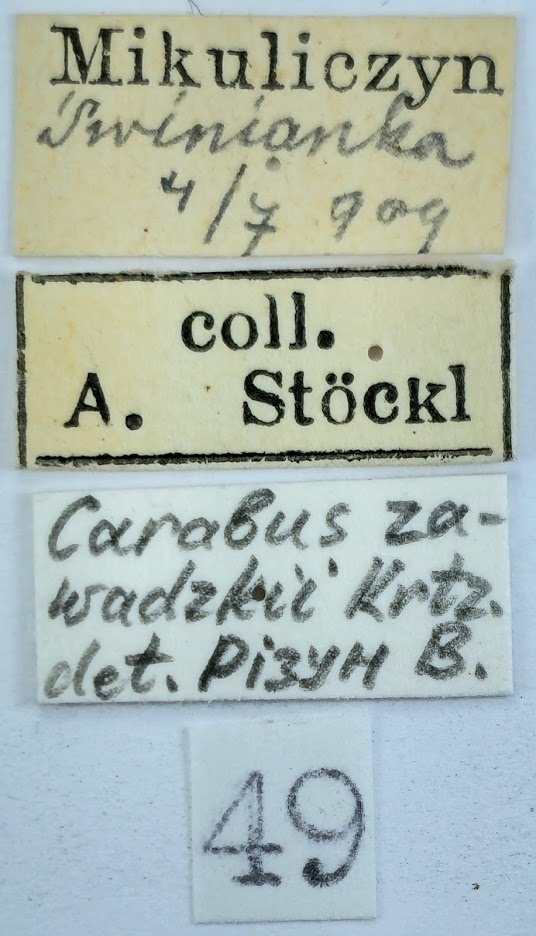 Mikuliczyn
Świnianka
4/7 909
coll.
A. Stöckl
Carabus za-
wadzkii Krtz.
det. Різун В.
49